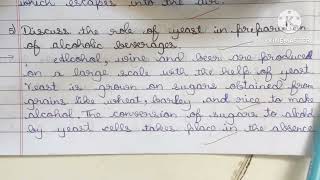 which escapes into the air.
5) Discuss the role of yeast in preparation
of alcoholic beverages.
→ alcohol, wine and beer are produced
on a large scale with the help of yeast
Yeast is grown on sugars obtained from
grains like wheat, barley and rice to make
alcohol. The conversion of sugars to alcohol
by yeast cells takes place in the absence
KINEMASTER